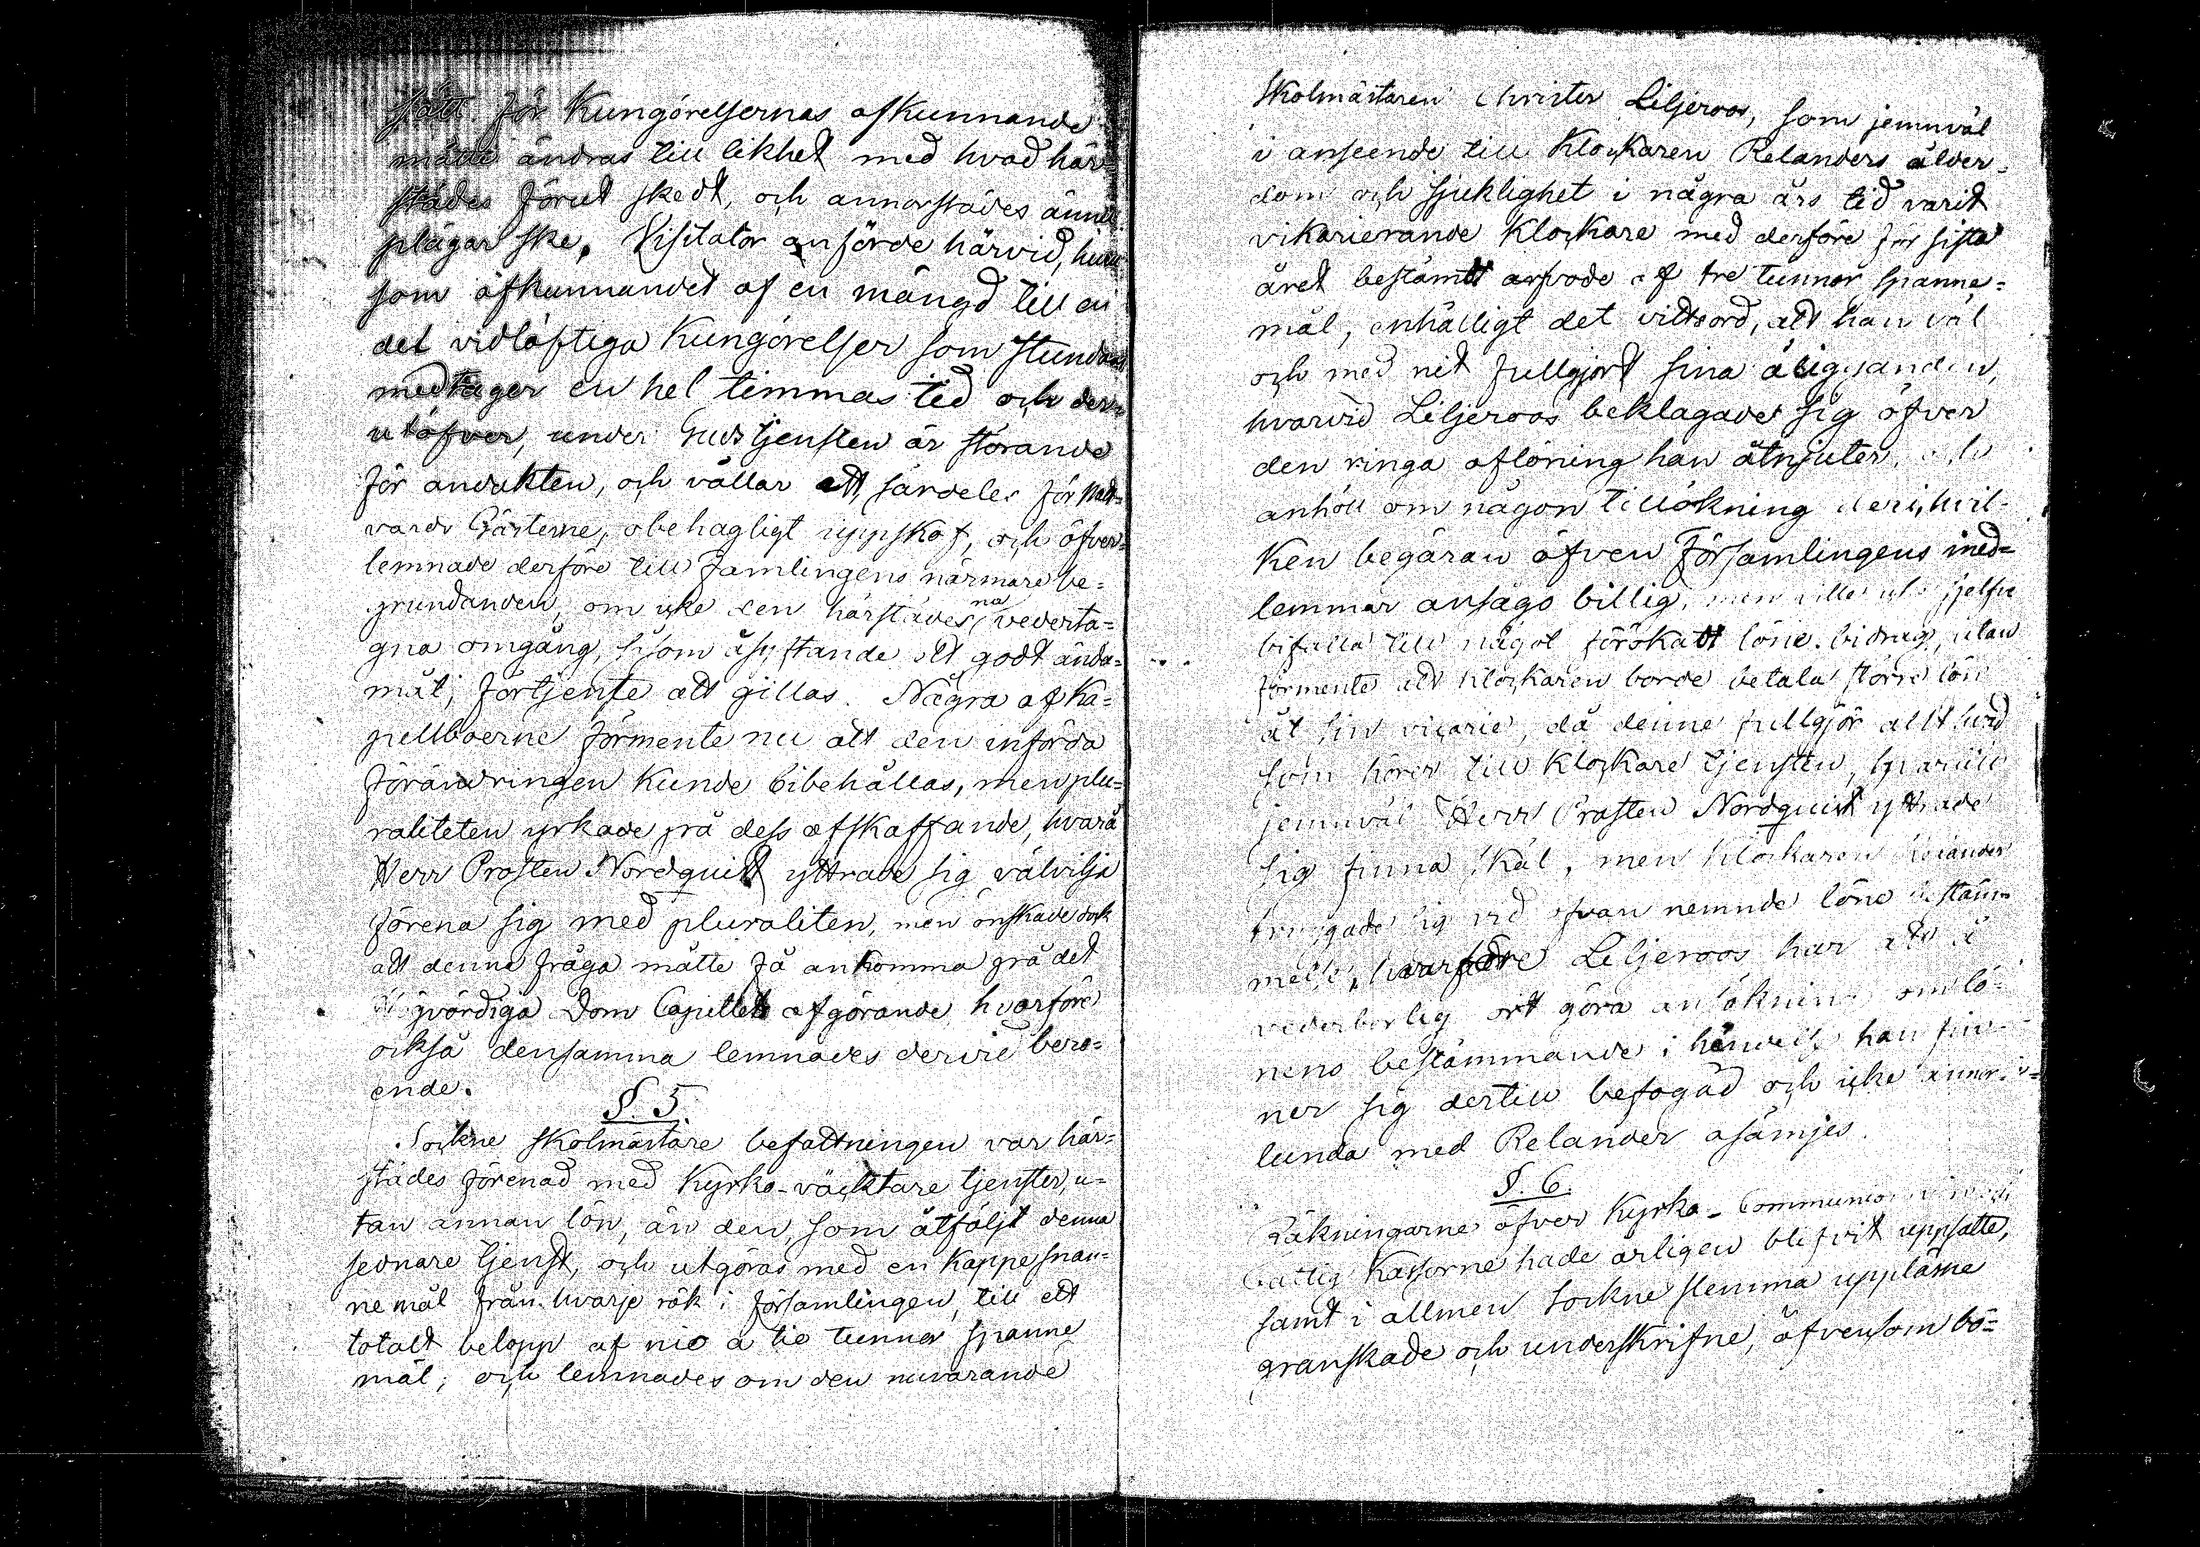 sätt för Kungörelsernas afkunnande
måtte ändras till likhet med hvad här-
städes förut skedt, och annorstädes ännu
plägar ske. Visitator anförde härvid, huru
som afkunnandet af en mängd till en
del vidlöftiga Kungörelser som stundom
medtager en hel timmas tid och der-
utöfver, under Gudstjensten är störande
för andakten, och vållar ett, särdeles för
vards Gästerne, obehagligt uppskof, och öfver-
lemnade derföre till Famlingens närmare be-
grundanden, om icke den härstädes na vederta-
gna omgång, såsom åsyftande ett godt ända-
mål, förtjente att gillas. Några af Ka-
pellboerne förmente nu att den införda
förändringen kunde bibehållas, men plu-
raliteten yrkade på dess afskaffande, hvarå
Herr Prosten Nordquist yttrade sig välvilja
förena sig med pluraliten, men önskade dock
att denna fråga måtte få ankomma på det
Högvördiga Dom Capitlets afgörande hvarföre
också densamma lemnades dervid bero-
ende.
§. 5.
Sockne skolmästare befattningen var här-
städes förenad med Kyrko-väcktare tjensten, u-
tan annan lön, än den, som åtföljt denna
sednare tjenst, och utgöras med en kappe span-
nemål från hvarje rök i församlingen, till ett
totalt belopp af nio a tio tunnor spanne
mål; och lemnades om den nuvarande
Skolmästaren Christer Liljeroos, som jemnväl
i anseende till Klockaren Relanders ålder-
dom och sjuklighet i några års tid varit
vikarierande Klockare med derföre för sista
året bestämdt arfvode af tre tunnor spanne-
mål, enhälligt det vittsord, att han väl
och med nit fullgjort sina åligganden,
hvarvid Liljeroos beklagade sig öfver
den ringa aflöning han åtnjuter, och
anhöll om någon tillökning deri, hvil-
ken begäran äfven Församlingens med-
lemmar ansågo billig, men ville icke sjelfve
bifalla till något förökadt löne bidrag, utan
förmente att klockaren borde betala större lön
åt sin vicarie, då denne fullgör allt hvad
som hörer till klockare tjensten, hvartill
jemnväl Herr Prosten Nordquist yttrade
sig finna skäl, men klockaren Relander
sig vid ofvan nemnde löne bestäm-
melse, hvarföre Liljeroos har att å
vederbörlig ort göra ansökning om lö-
nens bestämmande i händelse han fin-
ner sig dertill befogad och icke annor-
lunda med Relander åsämjes.
§. 6.
Räkningarne öfver Kyrko- Communion
fattig Kassorne hade årligen blifvit uppsatte,
samt i allmen sockne stemma upplästne
granskade och underskrifne, äfvensom bö-